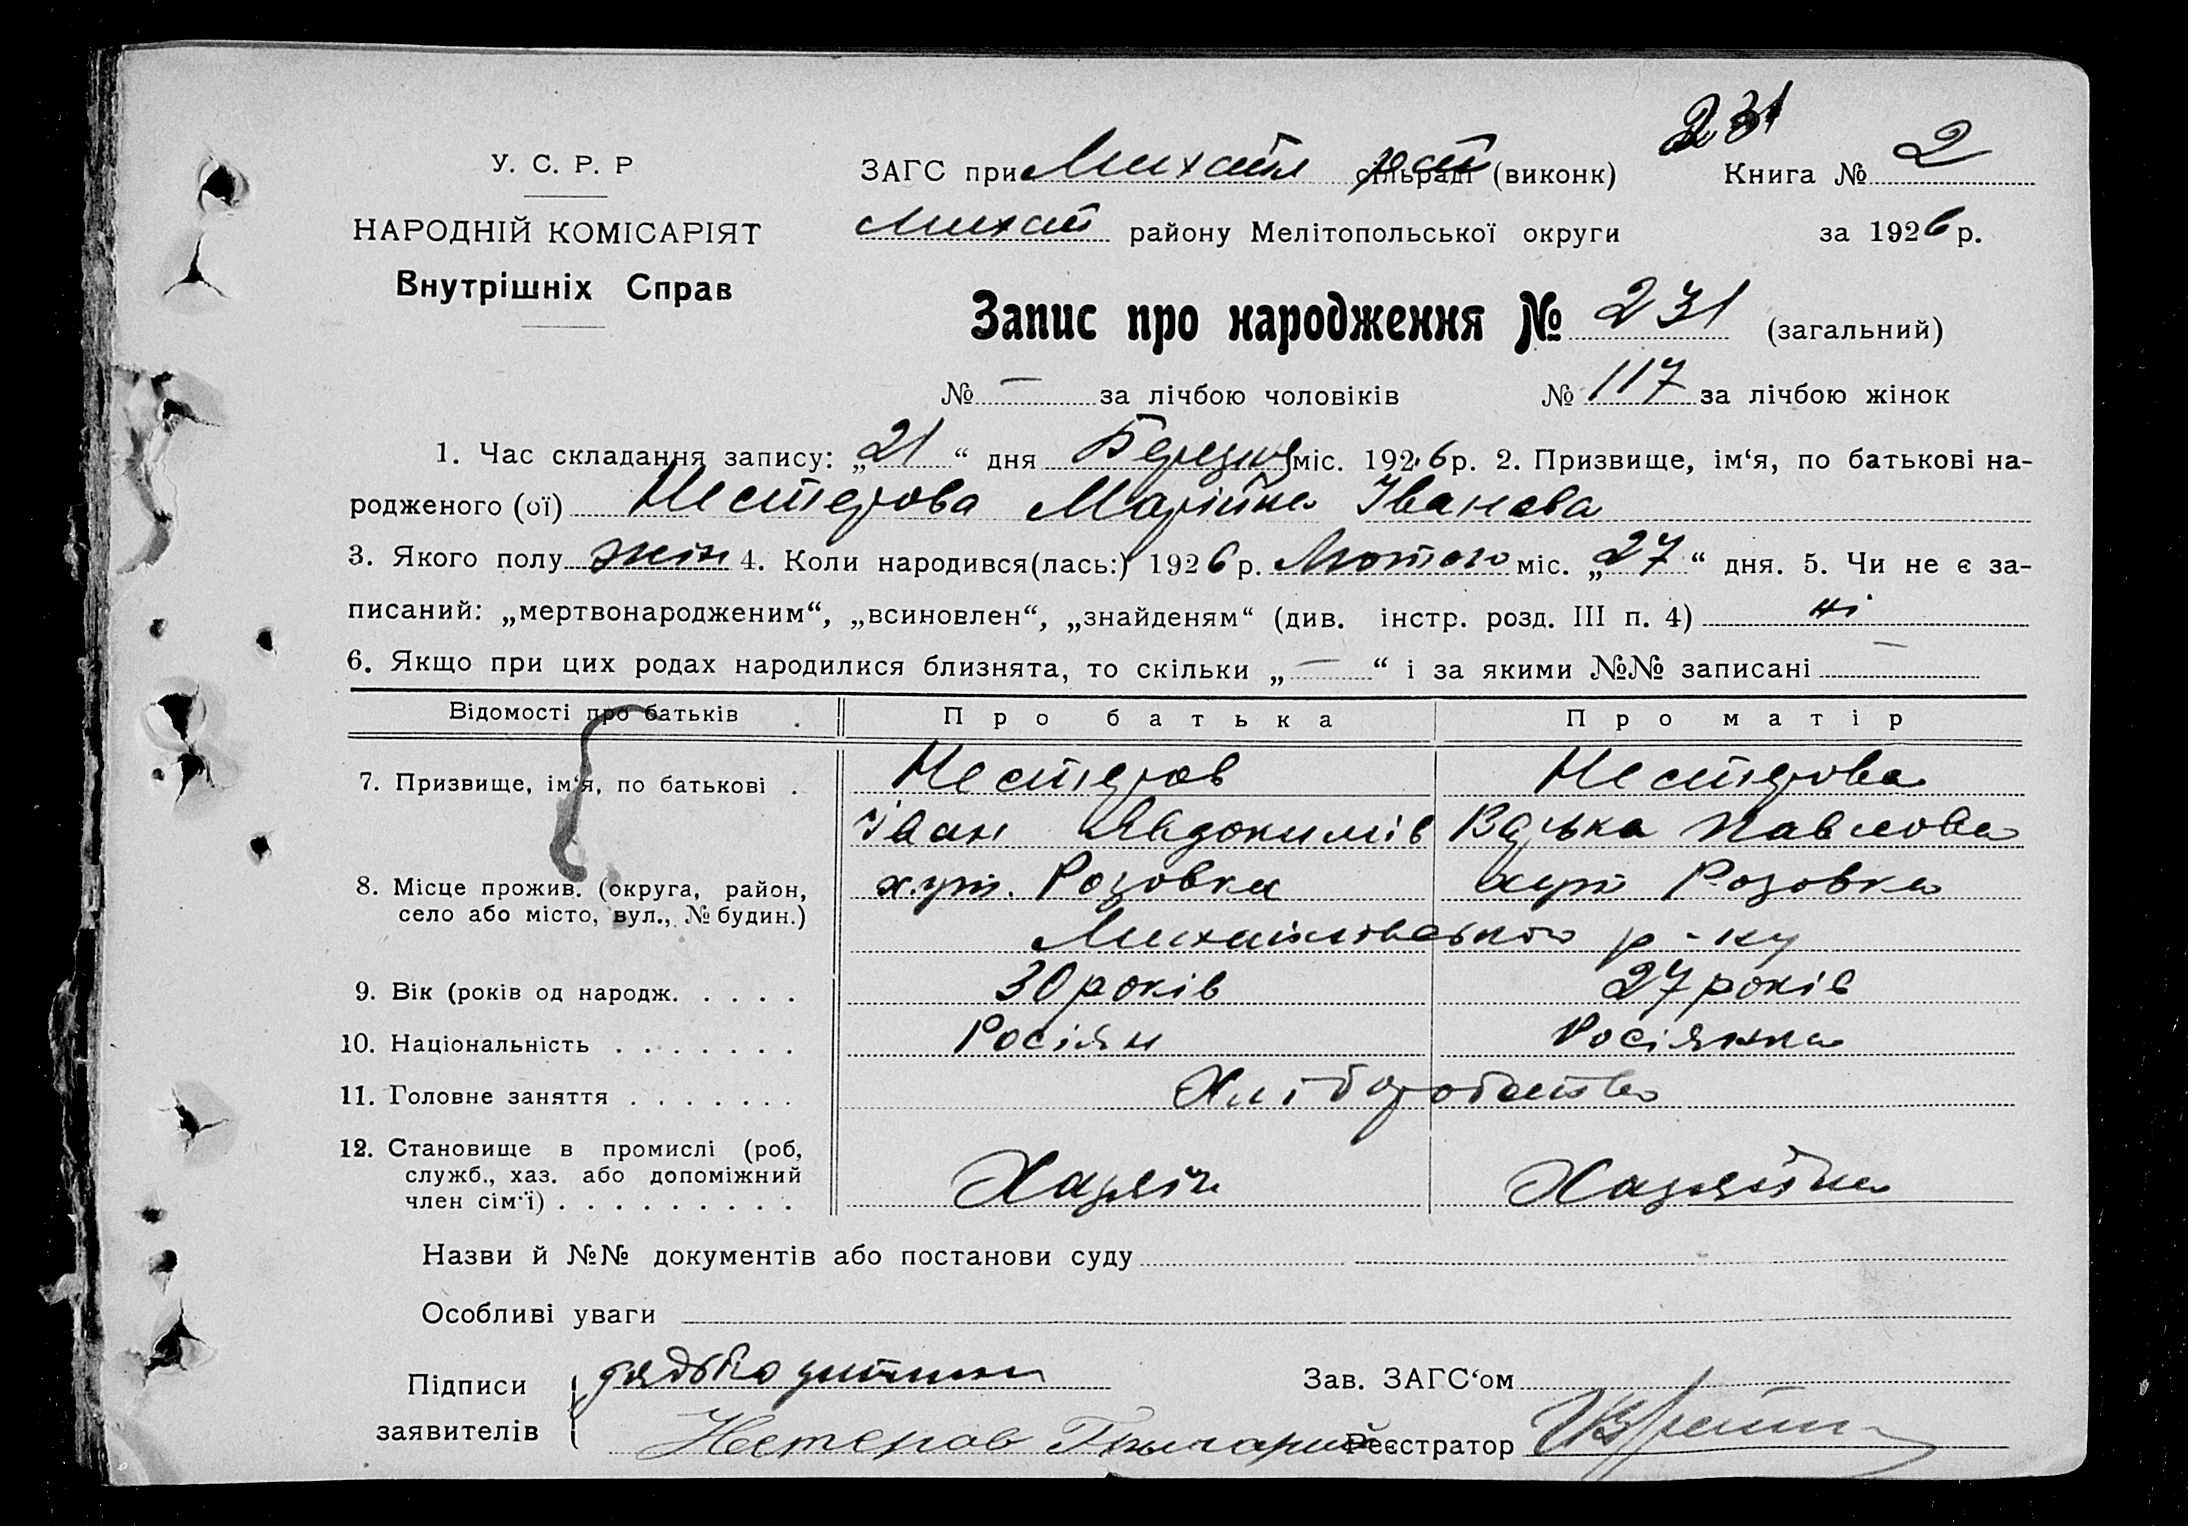 231
У. С. Р. Р
ЗАГС при Михайл сільраді (виконк) Книга № 2
НАРОДНІЙ КОМІСАРІЯТ
Михай району Мелітопольської округи за 1926 р.
Внутрішніх Справ
Запис про народження № 231 (загальний)
№ — за лічбою чоловіків № 117 за лічбою жінок
1. Час складання запису: „21“ дня Березня міс. 1926 р. 2. Призвище, ім‘я, по батькові на-
родженого (ої) Нестерова Марійка Іванова
3. Якого полу жін 4. Коли народився(лась:) 1926 р. Лютого міс. „27“ дня. 5. Чи не є за-
писаний: „мертвонародженим“, „всиновлен“, „знайденям“ (див. інстр. розд. III п. 4) ні
6. Якщо при цих родах народилися близнята, то скільки „—“ і за якими №№ записані —
Відомості про батьків . Про батька Про матір
7. Призвище, ім‘я, по батькові . Нестеров Нестерова
Іван Явдокимів Павлова
8. Місце прожив. (округа, район, хут. Розовка хут Розовка
село або місто, вул., № будин.)
Михайлівського р-ну
9. Вік (років од народж. . . . . 30 років 27 років
10. Національність . . . . . . . Росіян Росіянка
11. Головне заняття . . . . . . . Хліборобство
12. Становище в промислі (роб,
служб., хаз. або допоміжний Хазяїн Хазяйка
член сім‘ї) . . . . . . . . .
Назви й №№ документів або постанови суду
Особливі уваги
Підписи дядько дитини Зав. ЗАГС‘ом
заявителів Нестеров Реєстратор